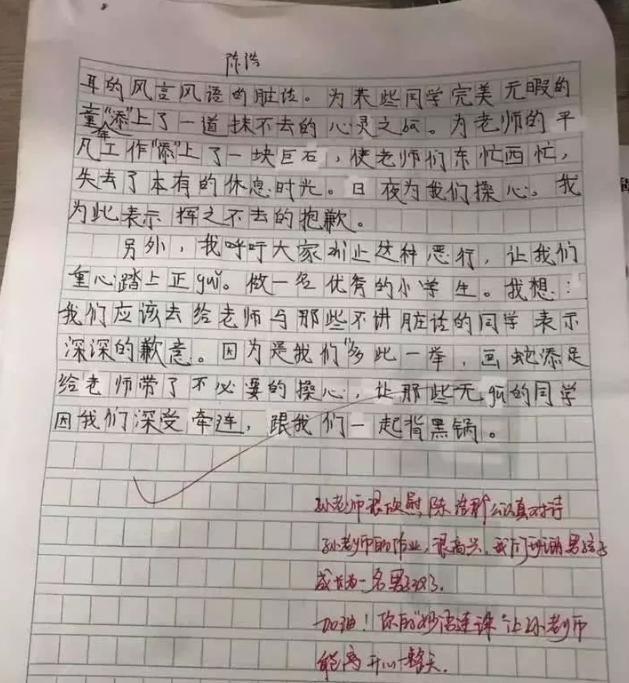 陈浩
耳的风言风语的脏话。为某些同学完美无暇的
童年"添"上了一道抹不去的心灵之。为老师的平
凡工作"添"上了一块巨石，使老师们东忙西忙，
失去了本有的休息时光。日夜为我们操心。我
为此表示挥之不去的抱歉。
另外，我呼吁大家制止这种恶行，让我们
重心踏上正guǐ。做一名优秀的小学生。我想：
我们应该去给老师与那些不讲脏话的同学表示
深深的歉意。因为是我们"多此一举，画蛇添足
给老师带了不必要的操心，让那些无gū的同学
因我们深受牵连，跟我们一起背黑锅。
孙老师很欣慰，陈浩那么认真对待
孙老师的作业，很高兴，我们班的男孩子
成长为一名男子汉了。
加油！你的"妙语连珠"让孙老师
能高开心一整天.